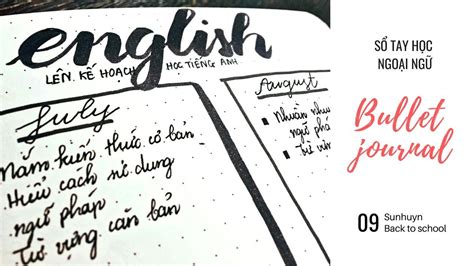 english
LÊN KẾ HOẠCH HỌC TIẾNG ANH
July
Nắm kiến thức cơ bản
Hiểu cách sử dụng
ngữ pháp
Từ vựng căn bản
August
Nhuần nhu
ngữ pháp
Từ vựn
SỔ TAY HỌC
NGOẠI NGỮ
Bullet
journal
09
Sunhuyn
Back to school